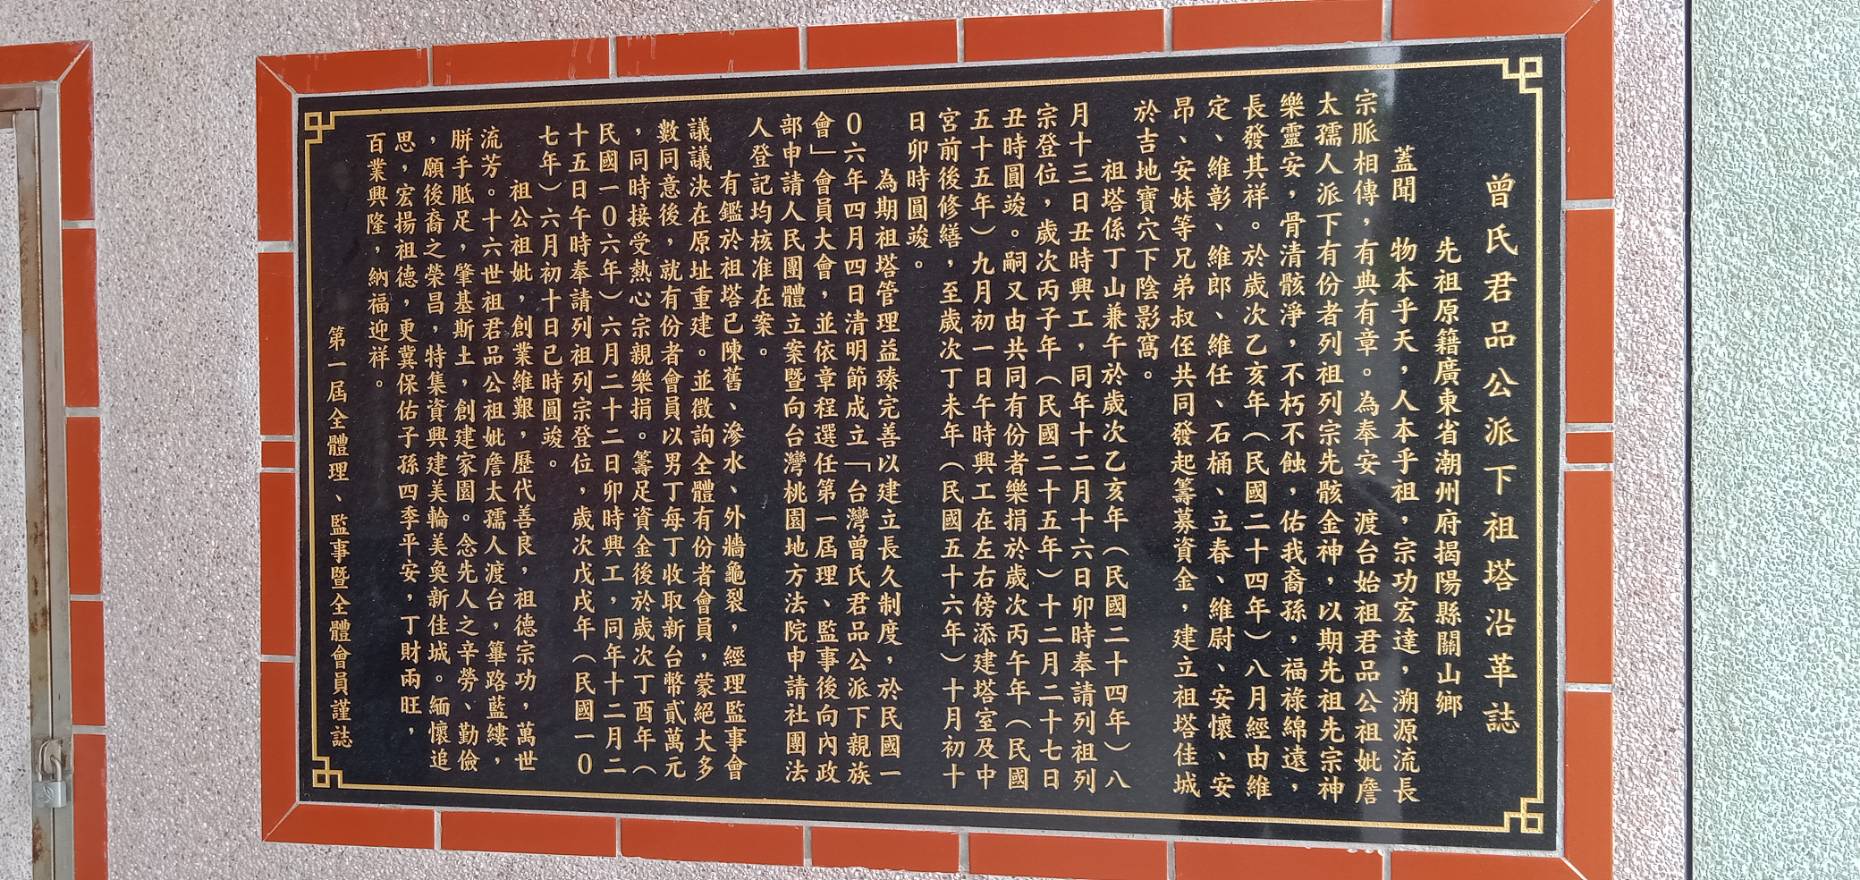 曾氏君品公派下祖塔沿革誌
先祖原籍廣東省潮州府揭陽縣關山鄉
蓋聞　物本乎天，人本乎祖，宗功宏達，溯源流長
宗脈相傳，有典有章。為奉安　渡台始祖君品公祖妣詹
太孺人派下有份者列祖列宗先骸金神，以期先祖先宗神
樂靈安，骨清骸淨，不朽不蝕，佑我裔孫，福祿綿遠，
長發其祥。於歲次乙亥年（民國二十四年）八月經由維
定、維彰、維郎、維任、石桶、立春、維尉、安懷、安
昂、安妹等兄弟叔侄共同發起籌募資金，建立祖塔佳城
於吉地寶穴下陰影窩。
祖塔係丁山兼午於歲次乙亥年（民國二十四年）八
月十三日丑時興工，同年十二月十六日卯時奉請列祖列
宗登位，歲次丙子年（民國二十五年）十二月二十七日
丑時圓竣。嗣又由共同有份者樂捐於歲次丙午年（民國
五十五年）九月初一日午時興工在左右傍添建塔室及中
宮前後修繕，至歲次丁未年（民國五十六年）十月初十
日卯時圓竣。
為期祖塔管理益臻完善以建立長久制度，於民國一
０六年四月四日清明節成立「台灣曾氏君品公派下親族
會」會員大會，並依章程選任第一屆理、監事後向內政
部申請人民團體立案暨向台灣桃園地方法院申請社團法
人登記均核准在案。
有鑑於祖塔已陳舊、滲水、外牆龜裂，經理監事會
議議決在原址重建。並徵詢全體有份者會員，蒙絕大多
數同意後，就有份者會員以男丁每丁收取新台幣貳萬元
，同時接受熱心宗親樂捐。籌足資金後於歲次丁酉年（
民國一０六年）六月二十二日卯時興工，同年十二月二
十五日午時奉請列祖列宗登位，歲次戊戌年（民國一０
七年）六月初十日巳時圓竣。
祖公祖妣，創業維艱，歷代善良，祖德宗功，萬世
流芳。十六世祖君品公祖妣詹太孺人渡台，篳路藍縷，
胼手胝足，肇基斯土，創建家園。念先人之辛勞、勤儉
，願後裔之榮昌，特集資興建美輪美奐新佳城。緬懷追
思，宏揚祖德，更冀保佑子孫四季平安，丁財兩旺，
百業興隆，納福迎祥。
第一屆全體理、監事暨全體會員謹誌